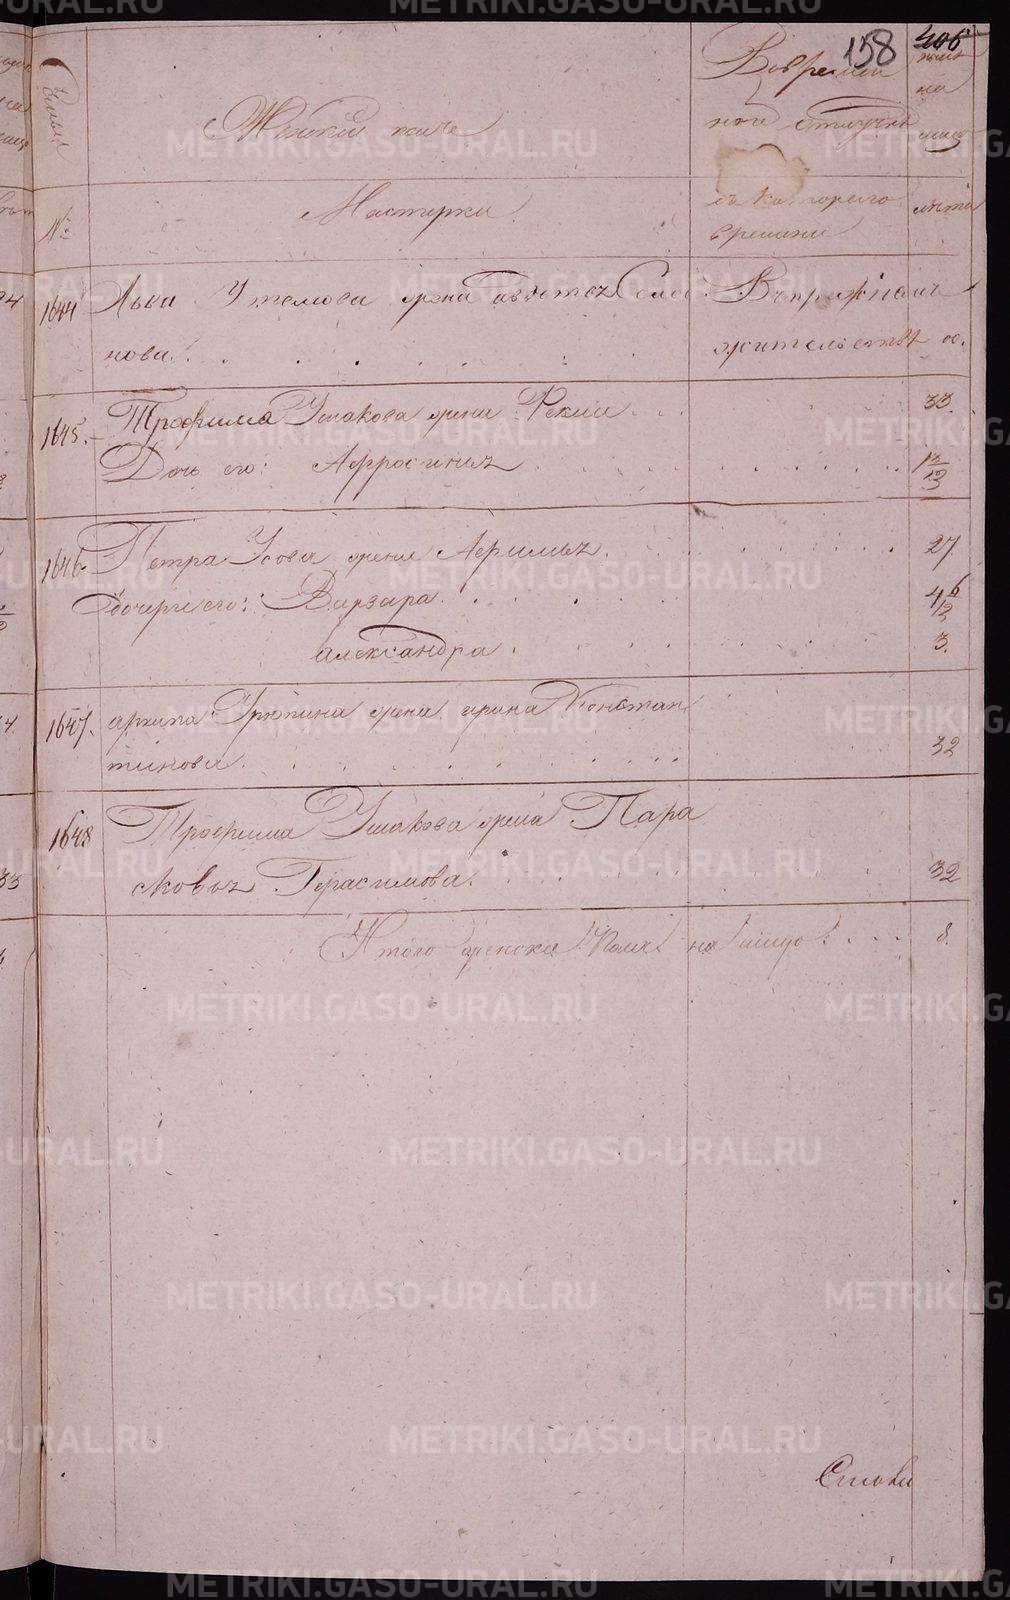 158
406
Семьи
Женский пол
Во времен
ной отлучке
ныне
на
лицо
№
Мастерки
съ котораго
времени
лѣта
1644 Льва Утемова жена Авдотья Семе
нова . . . . . . . .
В прежнем
жительстве
1645. Трофима Ушакова жена Фекла . . . 33.
Дочь его: Афросинья . . . . . . . . . .
1646. Петра Усова жена Афимья . . . . . . . 27
Дочери его: Варвара . . . . . . . .
александра . . . . . . 3.
1647. архипа Урюпина жена ирина Констан
тинова . . . . . . . . . . 32
1648 Трофима Ушакова жена Пара
сковья Герасимова . . . . . . . . 32
Итого женска пола на лицо . . . 8.
Слови
METRIKI.GASO-URAL.RU